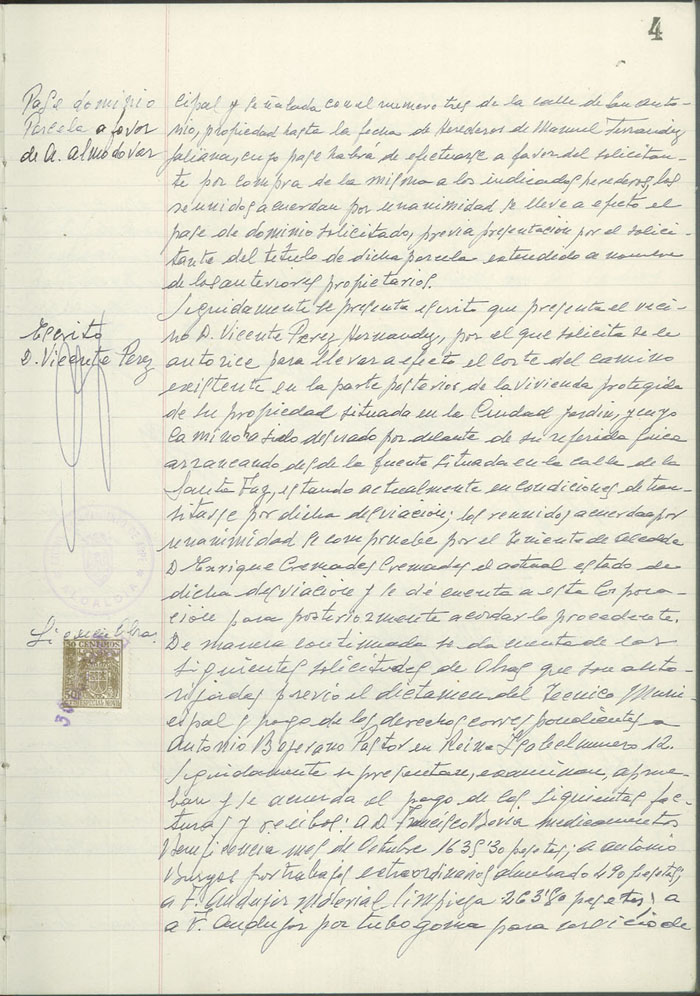 4
Pase dominio
Parcela a favor
de A. Almodovar
cipal y señalada con el numero tres de la calle de San Anto-
nio, propiedad hasta la fecha de Herederos de Manuel Ferrandez
Galiana, cuyo pase habrá de efectuarse a favor del solicitan-
te por compra de la misma a los indicados herederos, los
reunidos acuerdan por unanimidad se lleve a efecto el
pase de dominio solicitado, previa presentación por el solici-
tante del titulo de dicha parcela extendido a nombre
de los anteriores propietarios.
Escrito
D. Vicente Perez
Seguidamente se presenta escrito que presenta el veci-
no D. Vicente Perez Hernandez, por el que solicita se le
autorice para llevar a efecto el corte del camino
existente en la parte posterior de la vivienda protegida
de su propiedad situada en la Ciudad Jardin, y cuyo
camino ha sido desviado por delante de su referida finca
arrancando desde la fuente situada en la calle de la
Santa Faz, estando actualmente en condiciones de tran-
sitarse por dicha desviación; los reunidos acuerdan por
unanimidad se compruebe por el Teniente de Alcalde
D. Enrique Cremades Cremades el actual estado de
dicha desviación y se dé cuenta a esta Corpora-
ción para posteriormente acordar lo procedente.
ALCALDIA
Licencia obras.
50 CENTIMOS
De manera continuada se da cuenta de las
siguientes solicitudes de Obras que son auto-
rizadas previo el dictamen del Tecnico Muni-
cipal y pago de los derechos correspondientes a
Antonio Bejerano Pastor en Reina Isabel numero 12.
Seguidamente se presentan, examinan, aprue-
ban y se acuerda el pago de las siguientes fac-
turas y recibos: a D. Francisco Boria medicamentos
Beneficencia mes de Octubre 1635'30 pesetas; a Antonio
Burgos por trabajos extraordinarios alumbrado 490 pesetas;
a F. Andujar material limpieza 263'80 pesetas; a
a F. Andujar por tubo goma para servicio de